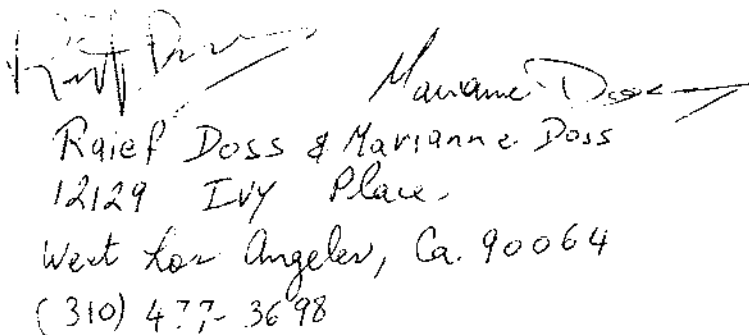 Marianne Doss
Raief Doss & Marianne Doss
12129 IVY Place.
West Los Angeles, Ca. 90064
(310) 477-3698